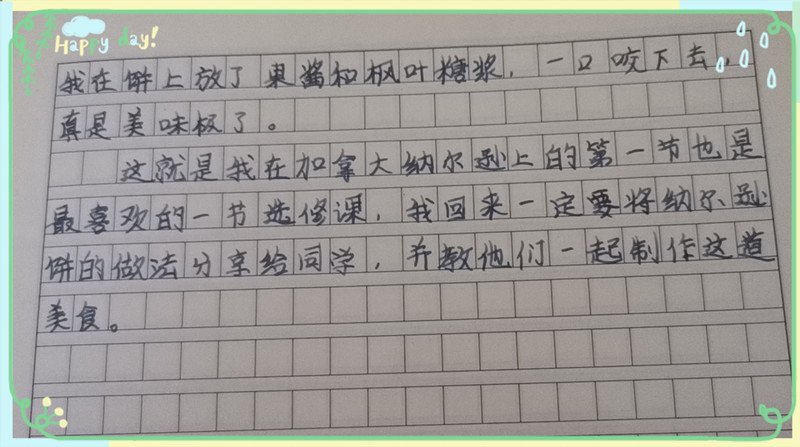 Happy day!
我在饼上放了果酱和枫叶糖浆，一口咬下去，
真是美味极了。
这就是我在加拿大纳尔逊上的第一节也是
最喜欢的一节选修课，我回来一定要将纳尔逊
饼的做法分享给同学，并教他们一起制作这道
美食。